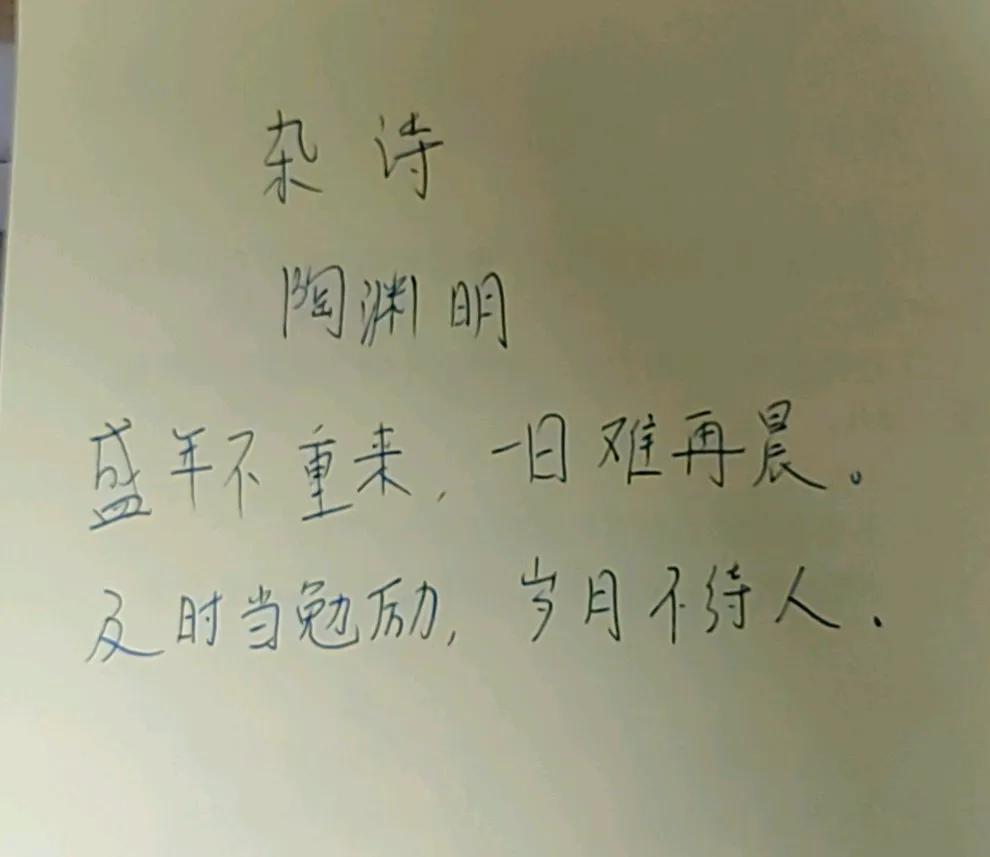 杂诗
陶渊明
盛年不重来，一日难再晨。
及时当勉励，岁月不待人.